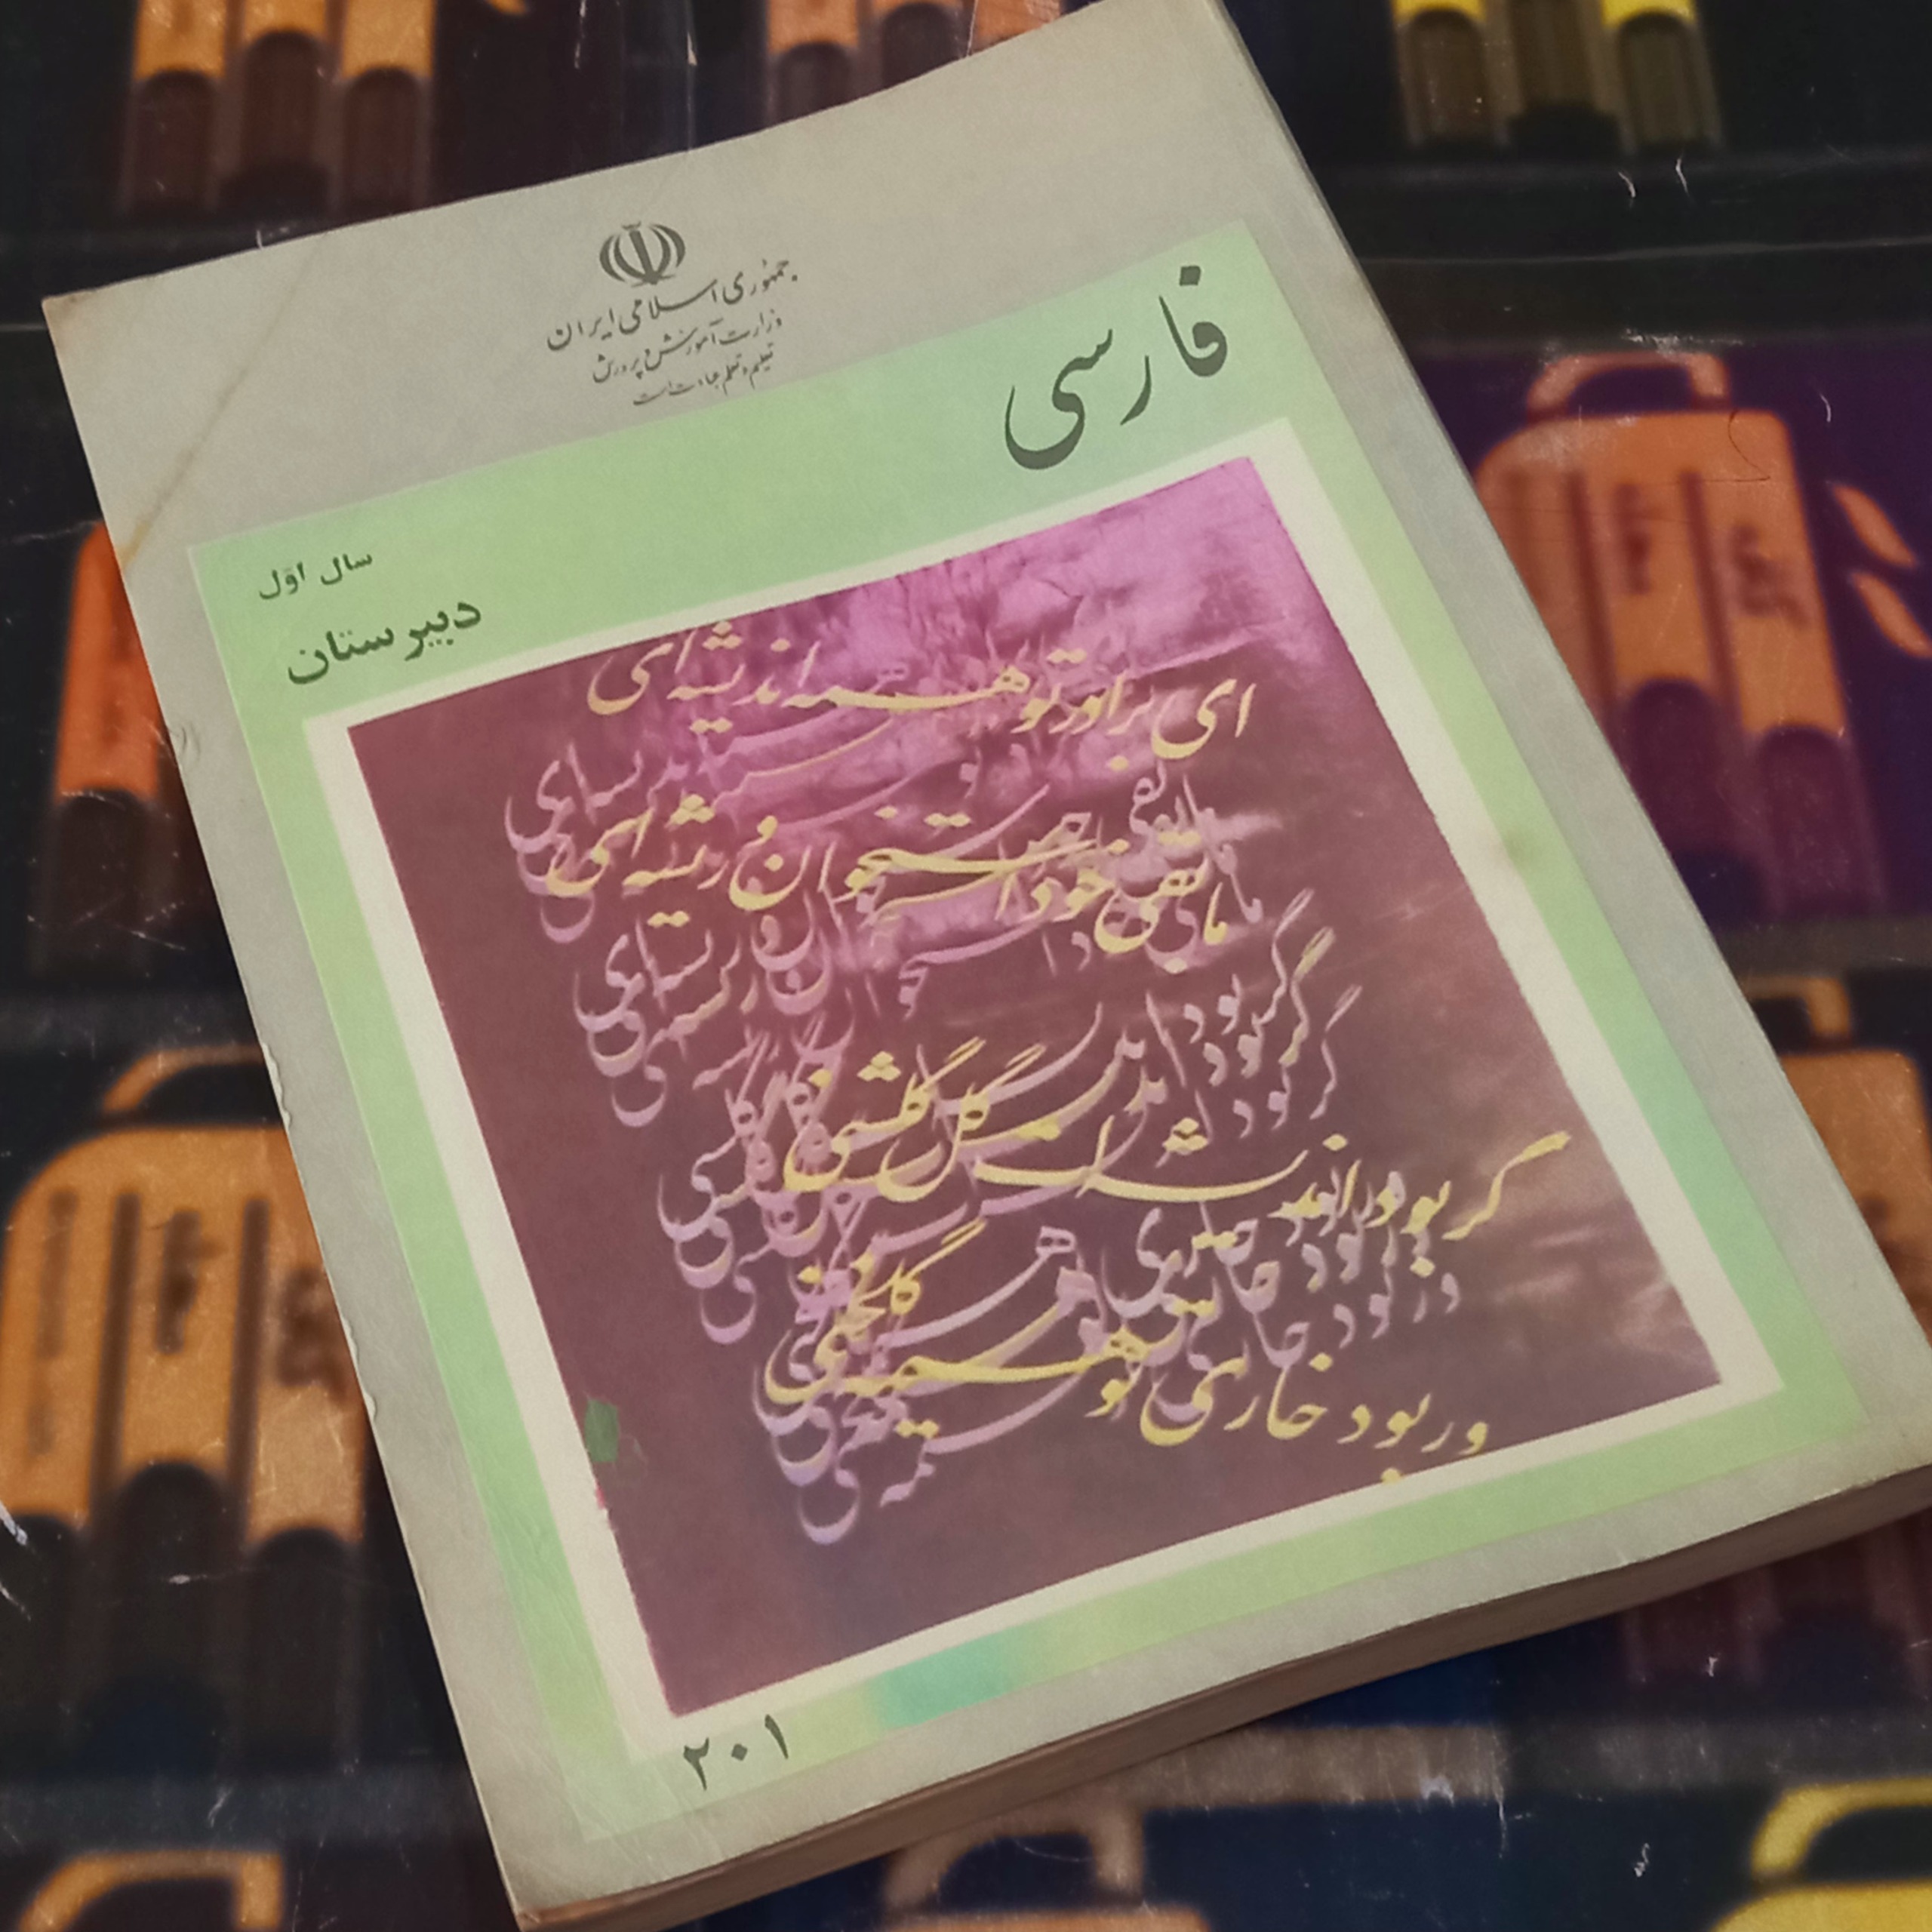 جمهوری اسلامی ایران
وزارت آموزش و پرورش
تعلیم و تعلم عبادت است
فارسی
سال اوّل
دبیرستان
ای برادر تو همه اندیشه‌ای
مابقی خود استخوان و ریشه‌ای
گر بود اندیشه‌ات گل گلشنی
ور بود خاری تو همیه گلخنی
۲۰۱